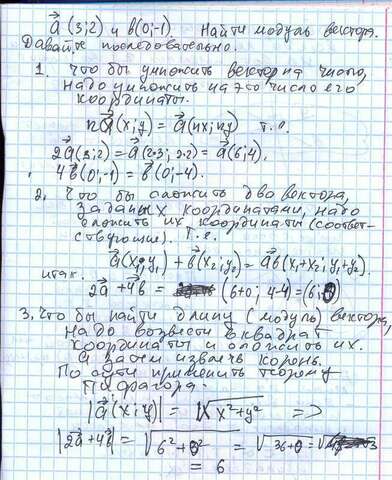 a⃗ (3;2) и b⃗(0;-1). Найти модуль вектора.
Давайте последовательно.
1. Что бы умножить вектор на число,
надо умножить на это число его
координаты.
na⃗(x;y) = a⃗(nx;ny) т.е.
2a⃗(3;2) = a⃗(2·3; 2·2) = a⃗(6;4).
4b⃗(0;-1) = b⃗(0;-4).
2. Что бы сложить два вектора,
заданых координатами, надо
сложить их координаты (соответ-
ствующие). Т.е.
a⃗(x₁;y₁) + b⃗(x₂;y₂) = ab⃗(x₁+x₂; y₁+y₂).
итак.
2a⃗ + 4b⃗ = (6+0; 4-4) = (6;0)
3. Что бы найти длину (модуль) вектора,
надо возвести в квадрат
координаты и сложить их.
а затем извлечь корень.
По сути применить теорему
Пифагора.
|a⃗(x;y)| = √x²+y² =>
|2a⃗+4b⃗| = √6²+0² = √36+0 = √
= 6